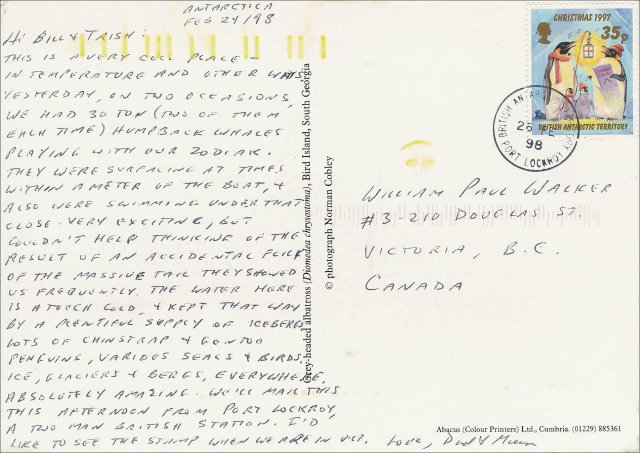 ANTARCTICA
FEB 24/98
HI BILL & TRISH:
THIS IS A VERY COOL PLACE -
IN TEMPERATURE AND OTHER WAYS
YESTERDAY, ON TWO OCCASIONS,
WE HAD 30 TON (TWO OF THEM
EACH TIME) HUMPBACK WHALES
PLAYING WITH OUR ZODIAK.
THEY WERE SURFACING AT TIMES
WITHIN A METER OF THE BOAT, &
ALSO WERE SWIMMING UNDER THAT
CLOSE. VERY EXCITING, BUT
COULDN'T HELP THINKING OF THE
RESULT OF AN ACCIDENTAL FLICK
OF THE MASSIVE TAIL THEY SHOWED
US FREQUENTLY. THE WATER HERE
IS A TOUCH COLD, & KEPT THAT WAY
BY A PLENTIFUL SUPPLY OF ICEBERGS
LOTS OF CHINSTRAP & GENTOO
PENGUINS, VARIOUS SEALS & BIRDS.
ICE, GLACIERS & BERGS, EVERYWHERE,
ABSOLUTELY AMAZING. WE'LL MAIL THIS
THIS AFTERNOON FROM PORT LOCKROY,
A TWO MAN BRITISH STATION. I'D
LIKE TO SEE THE STAMP WHEN WE ARE IN VIC. LOVE, Dad &
Grey-headed albatross (Diomedea chrysostoma), Bird Island, South Georgia
© photograph Norman Cobley
CHRISTMAS 1997
35p
BRITISH ANTARCTIC TERRITORY
BRITISH ANTARC
26 FE
98
PORT LOCKROY
WILLIAM PAUL WALKER
#3-210 DOUGLAS ST.
VICTORIA, B.C.
CANADA
Abacus (Colour Printers) Ltd., Cumbria. (01229) 885361